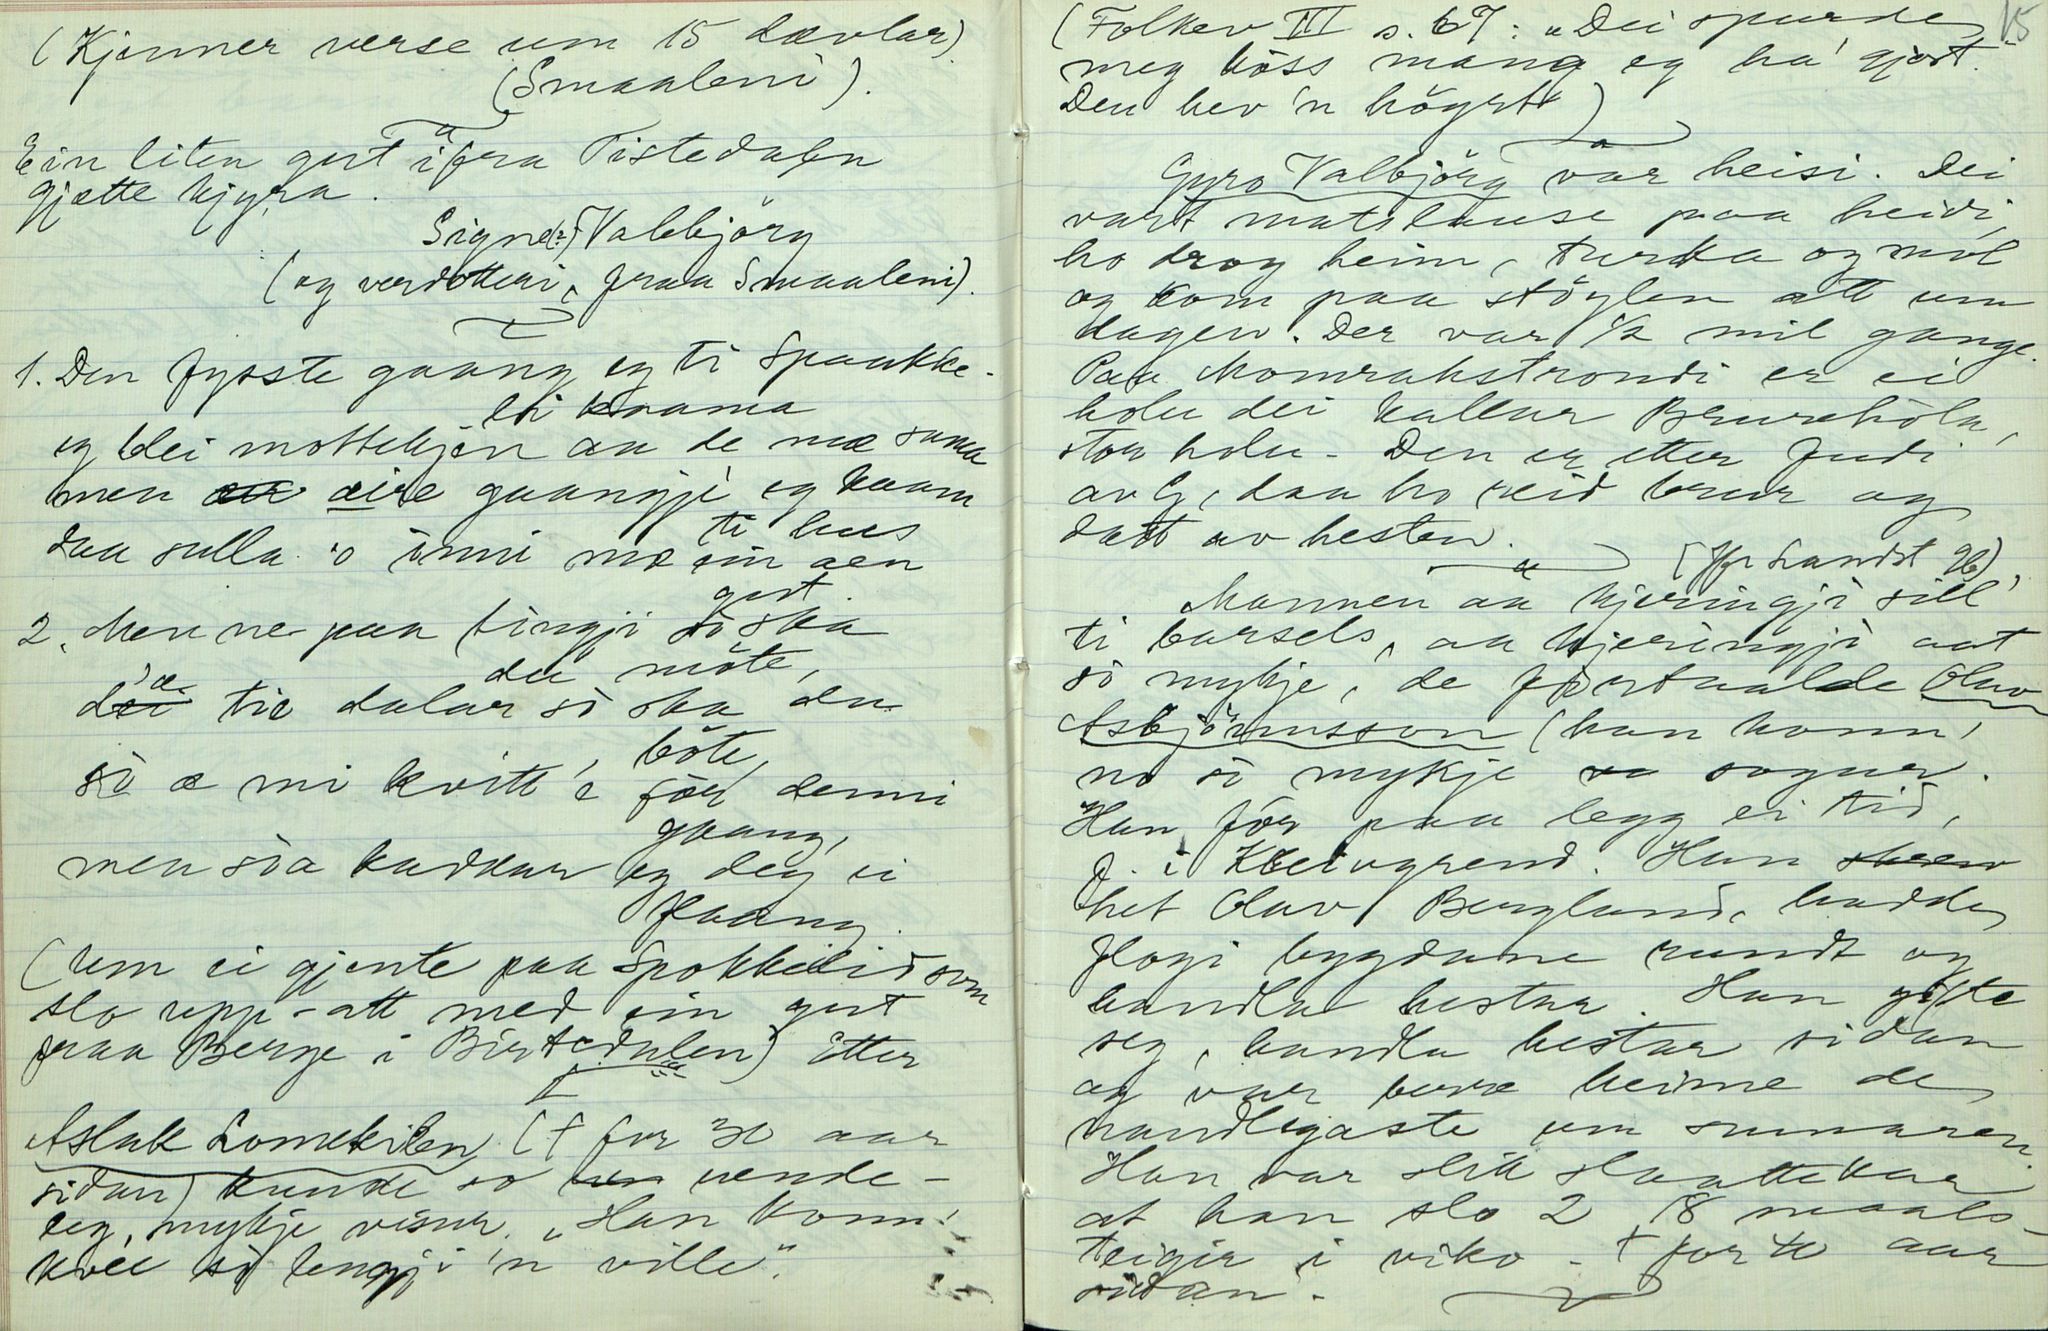 (Kjenner verse um 15 dævlar)
(Smaaleni).
Ein liten gut ifra Tistedalen
gjætte kjyra.
Signe(?) Valbjörg
(og verdotteri, fraa Smaaleni).
1. Den fysste gaang eg ti Spaakke-
li kaama
eg blei mottekjen aa de næ sama
men aire gaangji eg kaam
ti hus
daa sulla o inni mæ ein aen
gut.
2. Men ne paa tingji so ska
du möte,
dæ tie dalar so ska du
böte,
so æ mi kvitt 'e för denni
gaang,
men sia kaddar eg deg ei
faang.
(Um ei gjente paa Spokkelid som
slo upp-att med ein gut
fraa Berge i Birtedalen) Etter
Aslak Lomekilen († for 30 aar
sidan) kunde so uende-
leg mykje visur. "Han konn'
kvee so lengji 'n ville".
15
(Folkev III s. 67: "Dei spurde
meg höss mang eg ha' gjort."
Den hev 'n högrt)
Gyro Valbjörg var heisi. Dei
vart matslause paa heidi,
ho drog heim, turka og mol
og kom paa stöylen att um
dagen. Der var 1/2 mil gange.
Paa Momrakstrondi er ei
holu dei kallar Brureholu,
stor holu - Den er etter Gudi
av G, daa ho reid brur og
datt av hesten.
(Jfr Landst 96)
Mannen aa kjeringji sill'
ti barsels, aa kjeringji aat
so mykje, de fortaalde Olav
Asbjörnsson (han konn'
no so mykje sogur.
Han för paa legg ei tid,
i Kleivgrend. Han
het Olav Bergland, hadde
flogi bygdane rundt og
handla hestar. Han gifte
seg, handla hestar sidan
og var berre heime de
naudigaste um sumaren.
Han var slik slaattekar
at han slo 2 18 maals-
teigir i viko - † for 40 aar
sidan.